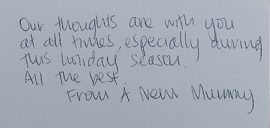 Our thoughts are with you
at all times, especially during
this holiday season.
All the best.
From A New Mummy